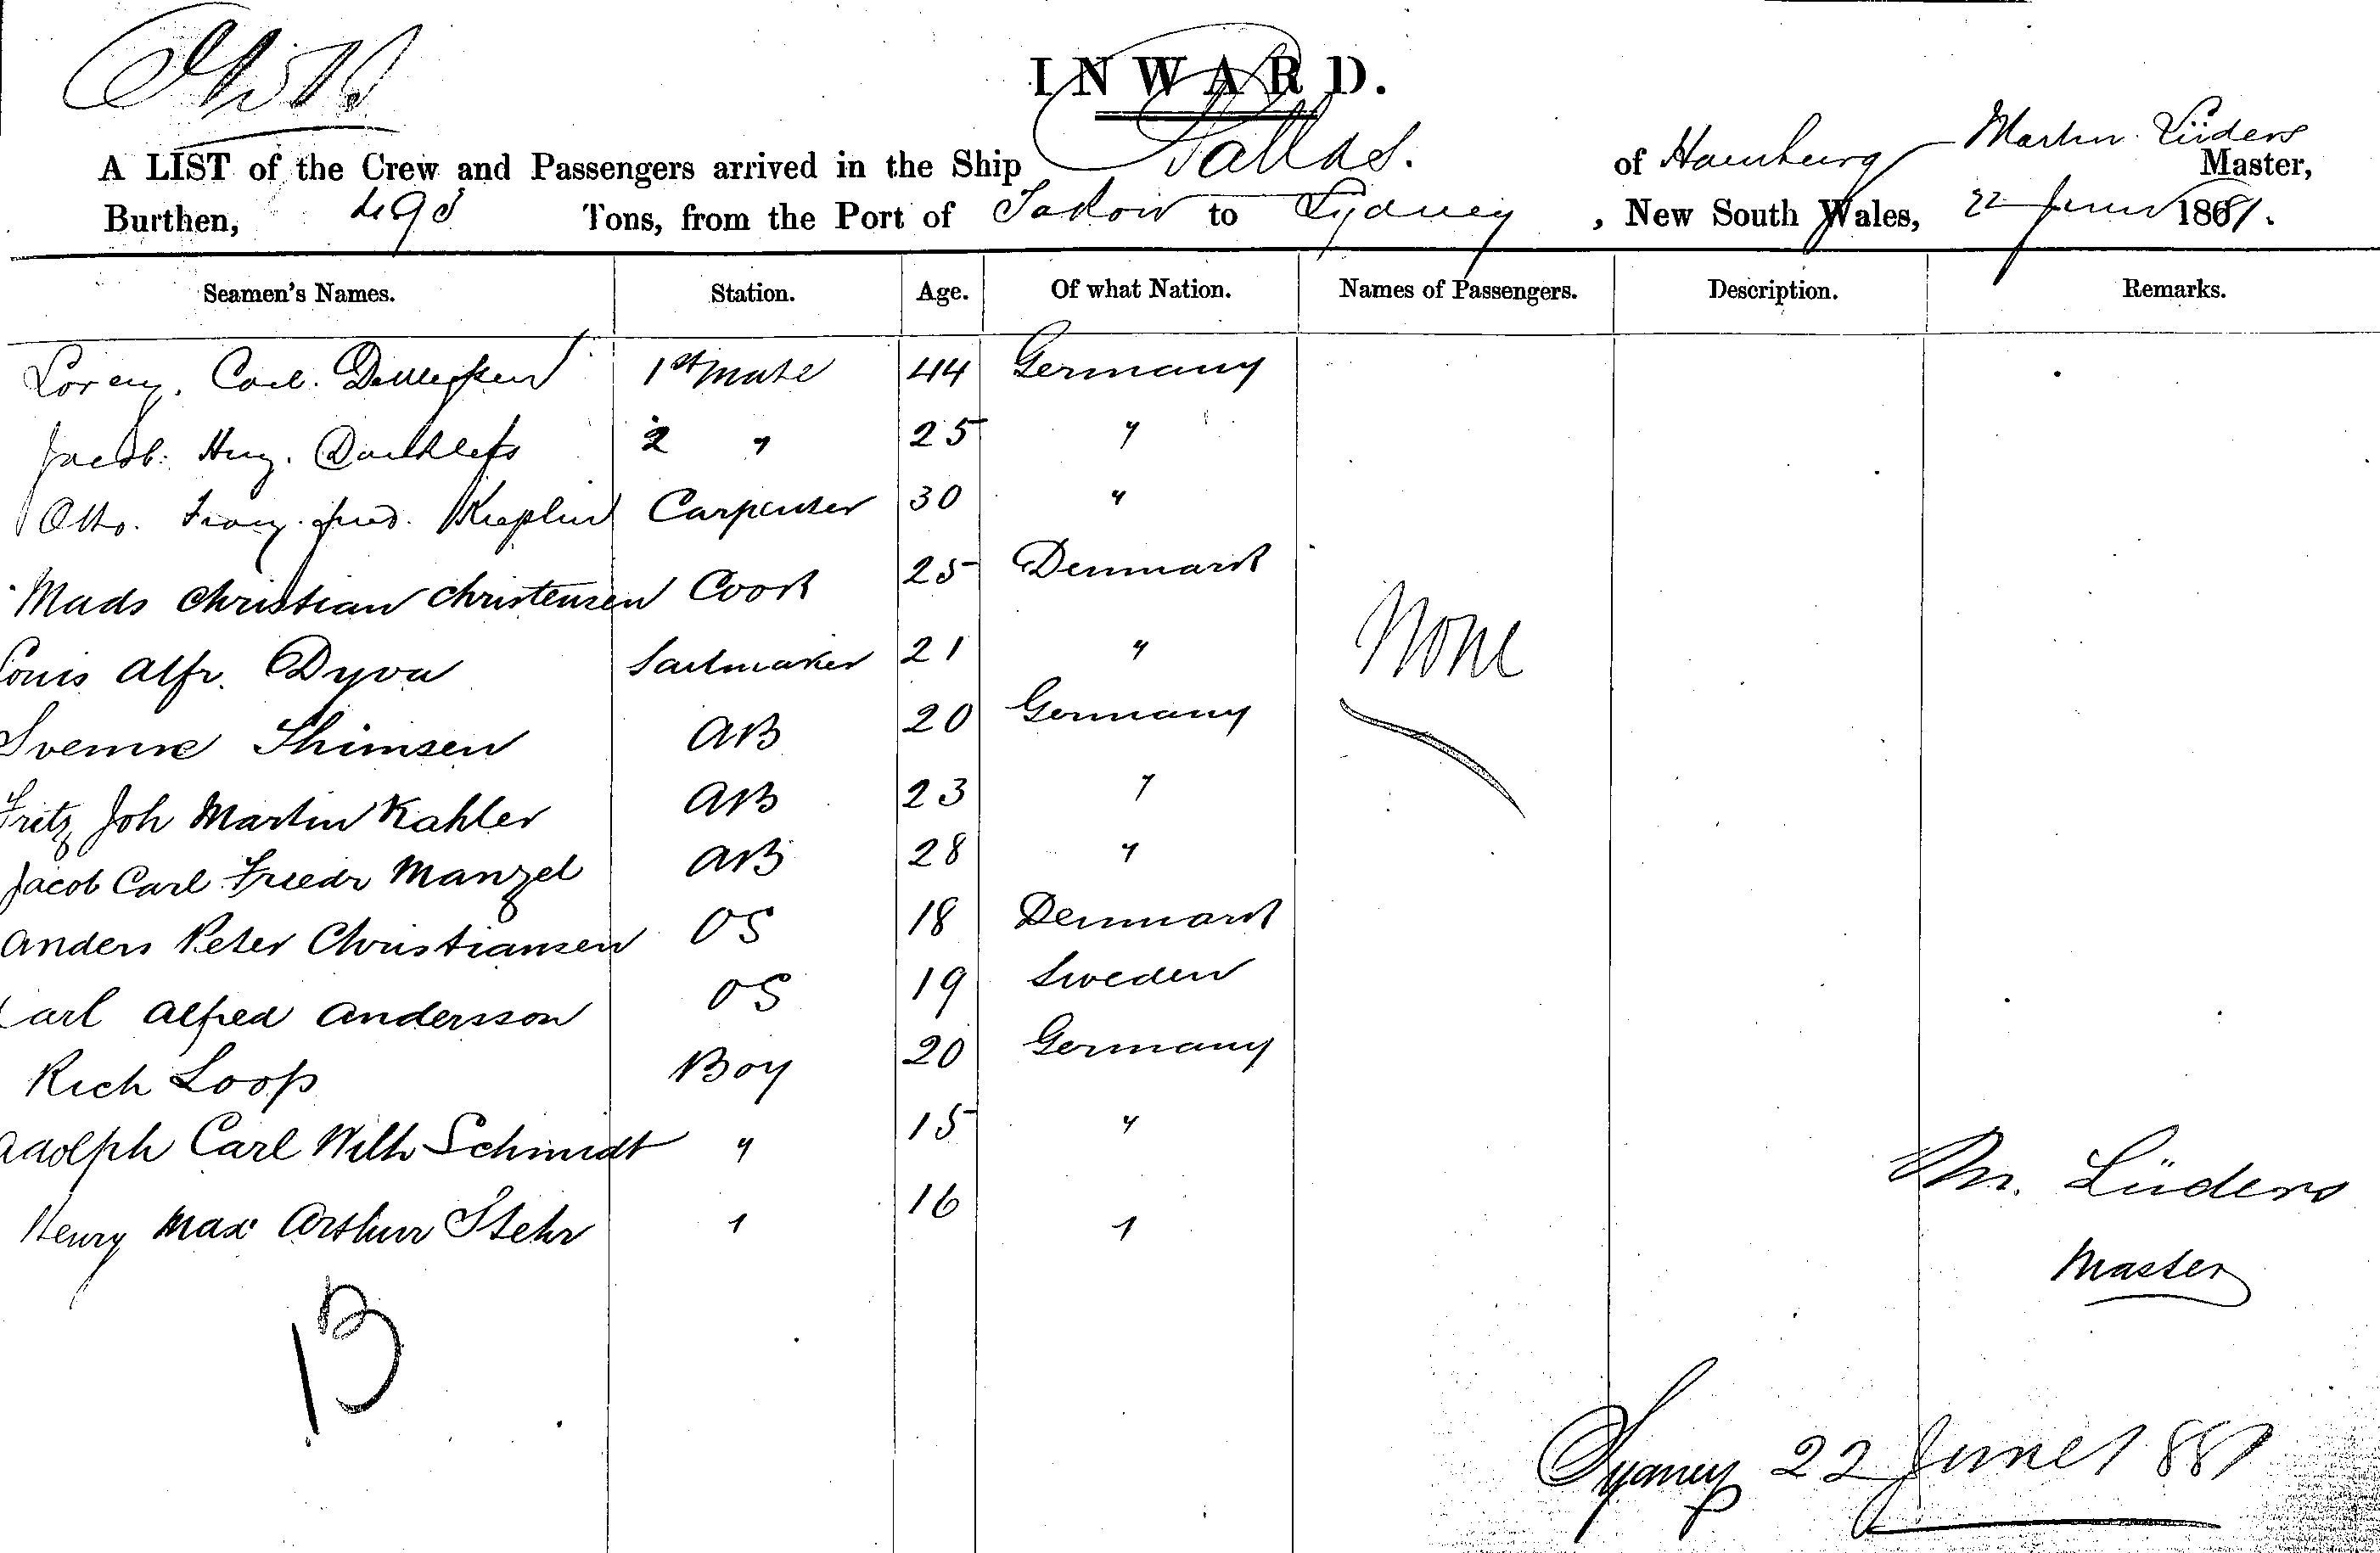 INWARD.
A LIST of the Crew and Passengers arrived in the Ship Pallas. of Hamburg Martin Lüders Master,
Burthen, 493 Tons, from the Port of to Sydney, New South Wales, 22 June 1881.
Seamen's Names. Station. Age. Of what Nation. Names of Passengers. Description. Remarks.
Lorenz. Carl. 1st Mate 44 Germany
Jacob. Hny. 2 " 25 "
Otto. Franz. Fred. Carpenter 30 "
Mads Christian Christensen Cook 25 Denmark
Louis Alfr. Dyva Sailmaker 21 "
None
Thimsen AB 20 Germany
Fritz Joh Martin Kahler AB 23 "
Jacob Carl Friedr Manzel AB 28 "
Anders Peter Christiansen OS 18 Denmark
Carl Alfred Andersson OS 19 Sweden
Rich Loop Boy 20 Germany
Adolph Carl Wilh Schmidt " 15 "
Henry Max Arthur Stehr " 16 "
M. Lüders
Master
13
Sydney 22 June 1881